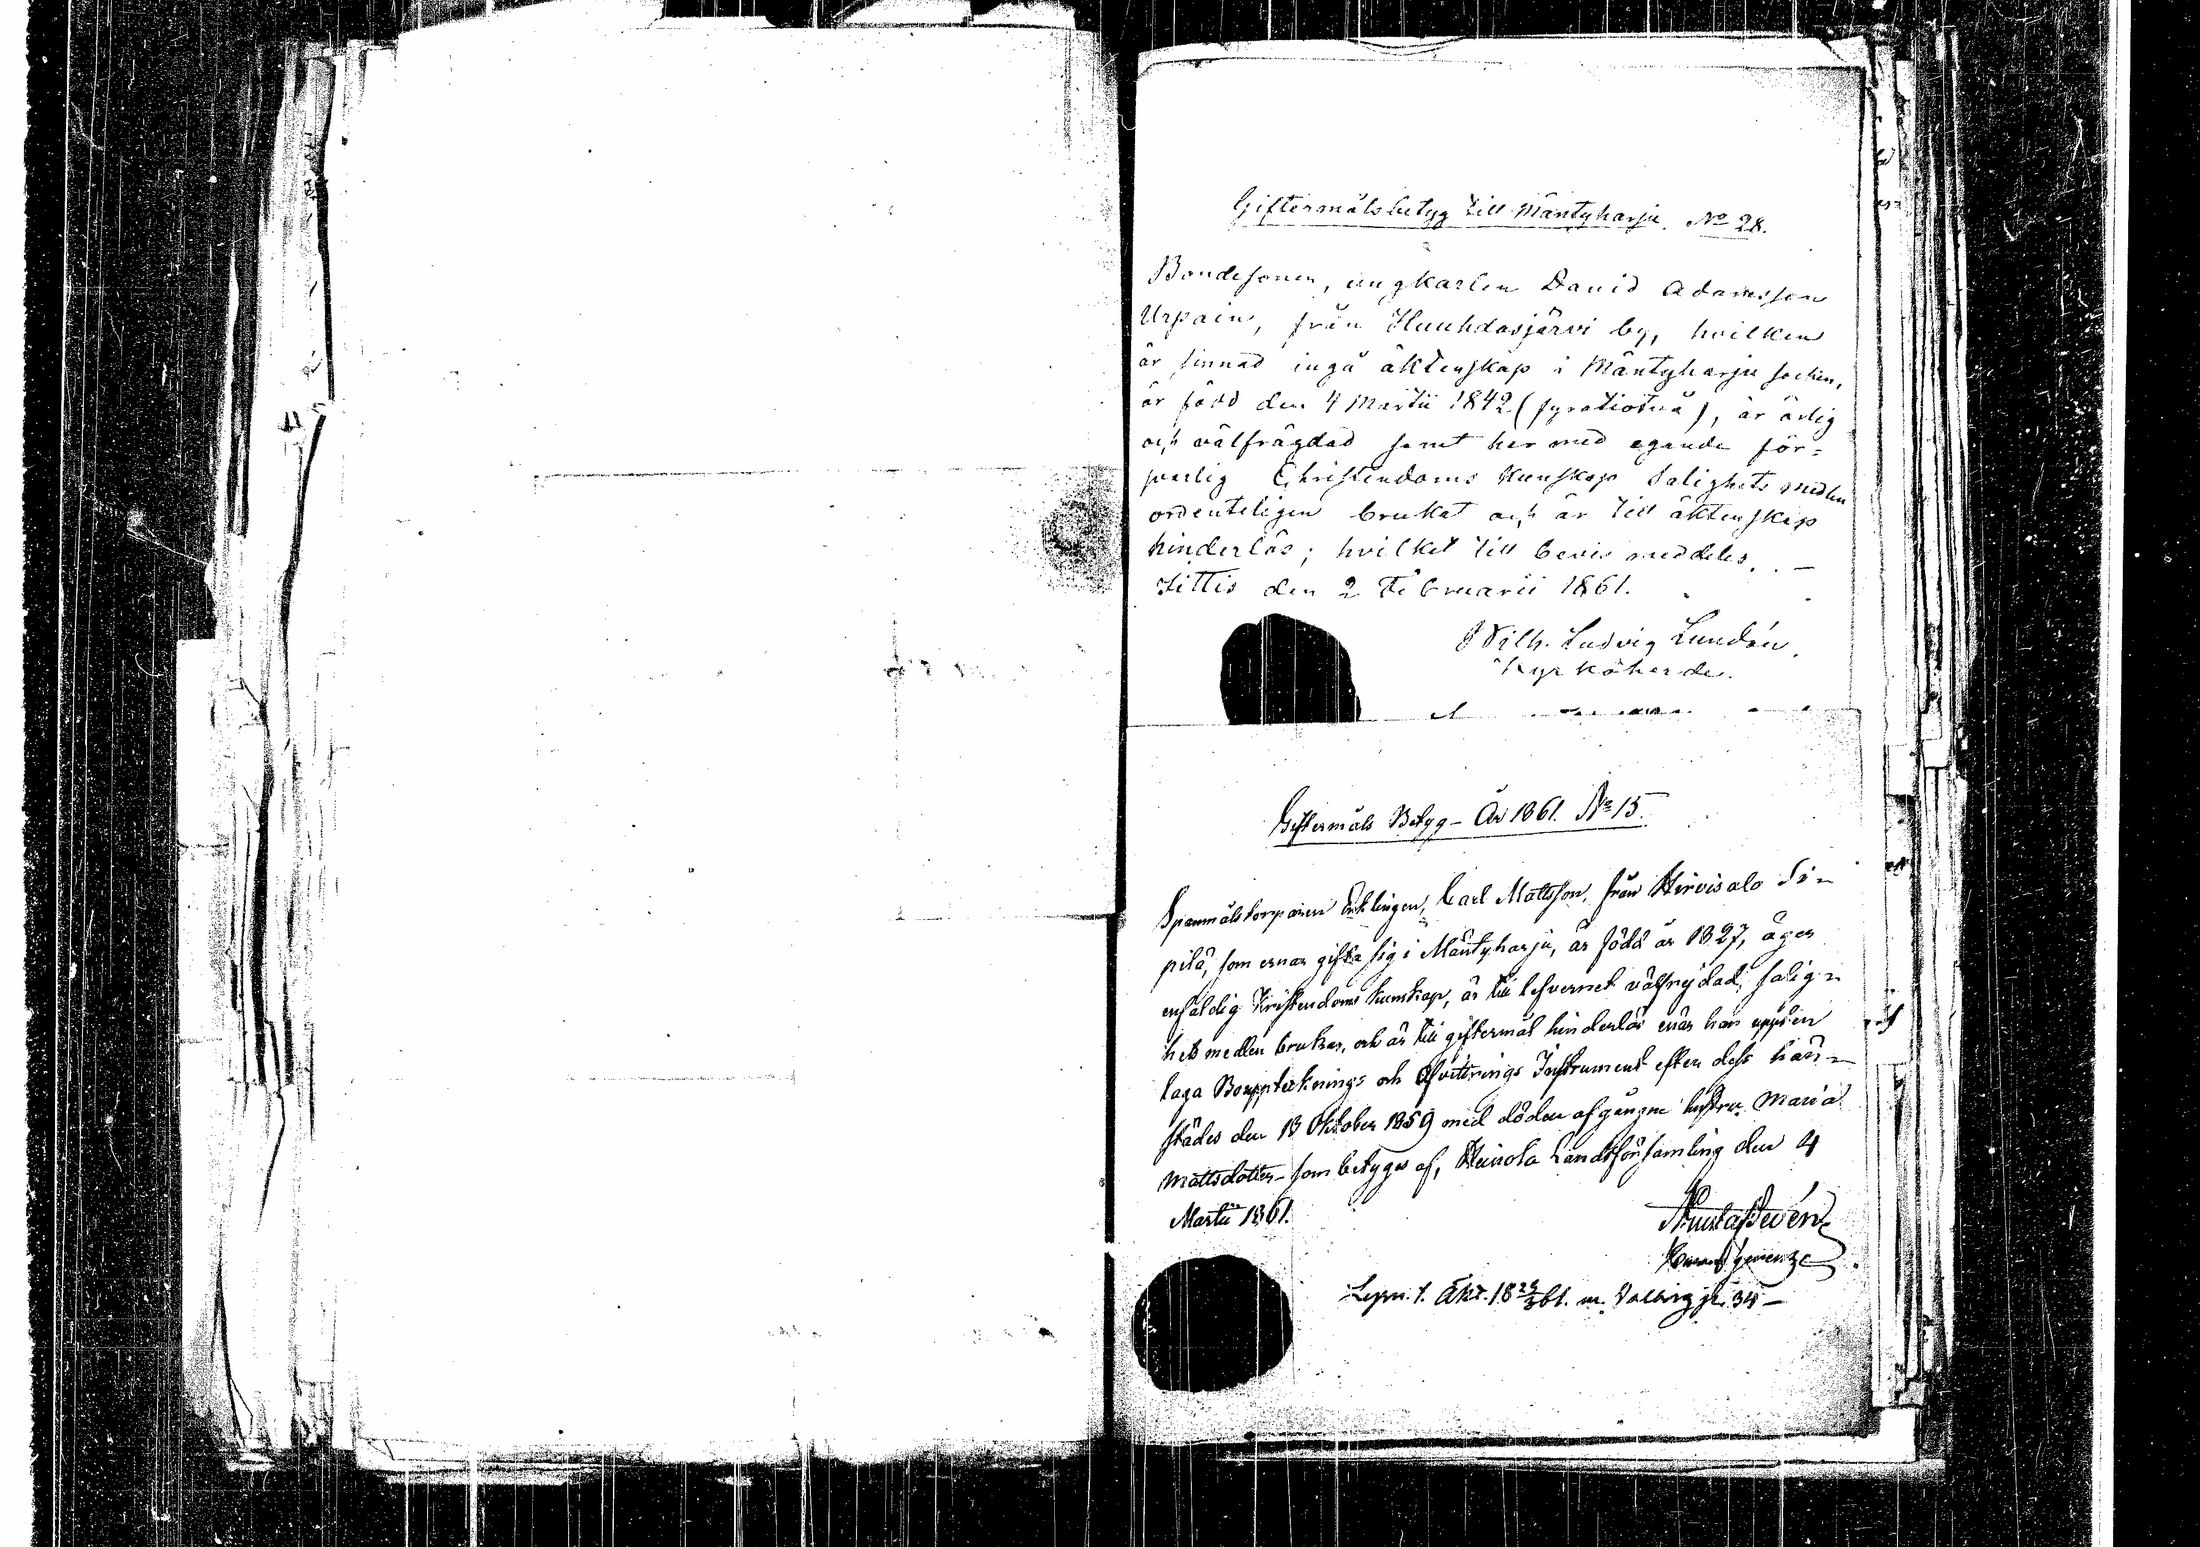 Giftermålsbetyg till Mäntyharju. No 28.
Bondesonen, ungkarlen David Adamsson
Urpain, från Huuhdasjärvi by, hvilken
är sinnad ingå äktenskap i Mäntyharju socken,
är född den 4 Martii 1842 (fyratiotvå), är ärlig
och välfrägdad samt har med egande för-
svarlig Christendoms kunskap Salighets medlen
ordenteligen brukat och är till äktenskap
hinderlös; hvilket till bevis meddeles. —
Jittis den 2 Februarii 1861.
Wilh. Ludvig Lundén.
Kyrkoherde.
Giftermåls Betyg – År 1861. No 15.
Spanmålstorparen Enklingen, Carl Mattsson, från Hirvisalo Si-
pilä, som ernar gifta sig i Mäntyharju, är född år 1827, äger
enfaldig Kristendoms kunskap, är till lefvernet välfrejdad, salig-
hets medlen brukar, och är till giftermål hinderlös enär han uppsen
laga Bouppteknings och Afvittrings Instrument efter dess här-
städes den 13 Oktober 1859 med döden afgångne hustru Maria
Mattsdotter – som betygas af, Heinola Landsförsamling den 4
Martii 1861.
Lysn. t. Äkt. 18 24/3 61. m.